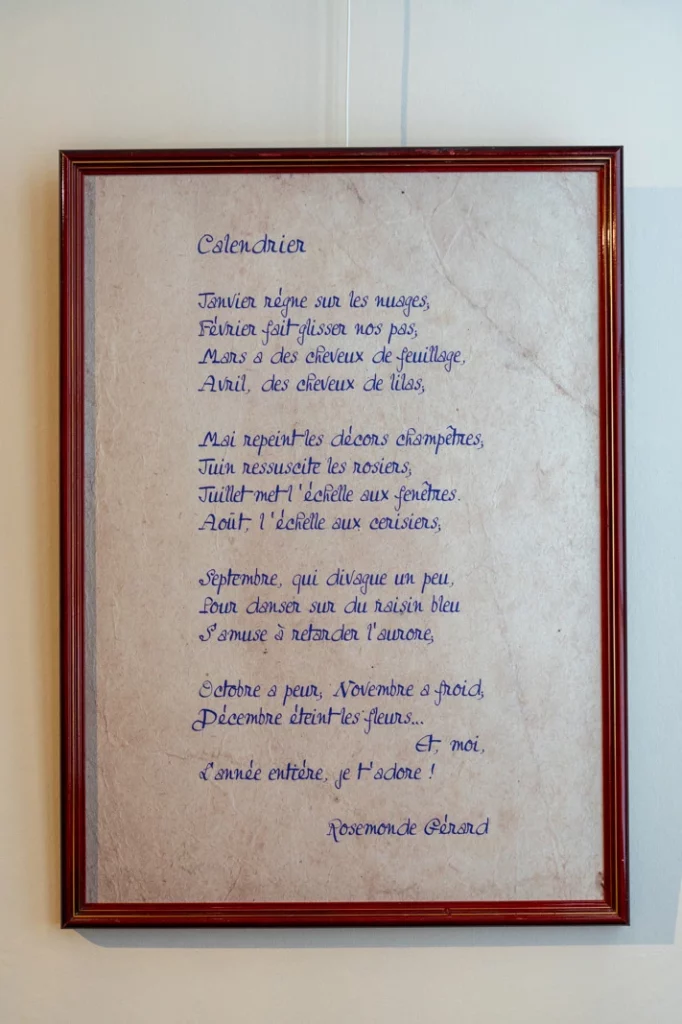 Calendrier
Janvier règne sur les nuages;
Février fait glisser nos pas;
Mars a des cheveux de feuillage,
Avril, des cheveux de lilas;
Mai repeint les décors champêtres;
Juin ressuscite les rosiers;
Juillet met l'échelle aux fenêtres.
Août, l'échelle aux cerisiers;
Septembre, qui divague un peu,
Pour danser sur du raisin bleu
S'amuse à retarder l'aurore;
Octobre a peur; Novembre a froid;
Décembre éteint les fleurs...
Et, moi,
L'année entière, je t'adore !
Rosemonde Gérard